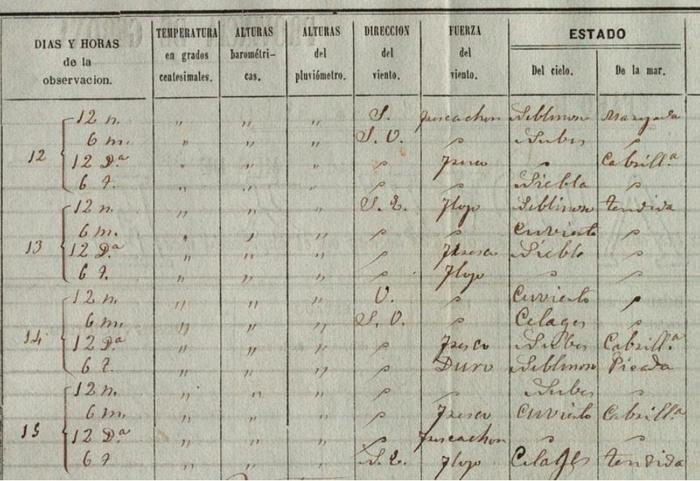 DIAS Y HORAS de la observacion. TEMPERATURA en grados centesimales. ALTURAS barométri-cas. ALTURAS del pluviómetro. DIRECCION del viento. FUERZA del viento. ESTADO Del cielo. De la mar.
12 12 n. " " " S. frescachon Neblinoso Marejada
6 m. " " " S. O. " Nubes "
12 D.a " " " " fresco " Cabrill.a
6 t. " " " " " Niebla "
13 12 n. " " " S. E. flojo Neblinoso tendida
6 m. " " " " " Cuvierto "
12 D.a " " " " fresco Niebla "
6 t. " " " " flojo " "
14 12 n. " " " O. " Cuvierto "
6 m. " " " S. O. " Celages "
12 D.a " " " " fresco Nubes Cabrill.a
6 t. " " " " Duro Neblinoso Picada
15 12 n. " " " " " Nubes "
6 m. " " " " fresco Cuvierto Cabrill.a
12 D.a " " " " frescachon " "
6 t " " " S. E. flojo Celages tendida